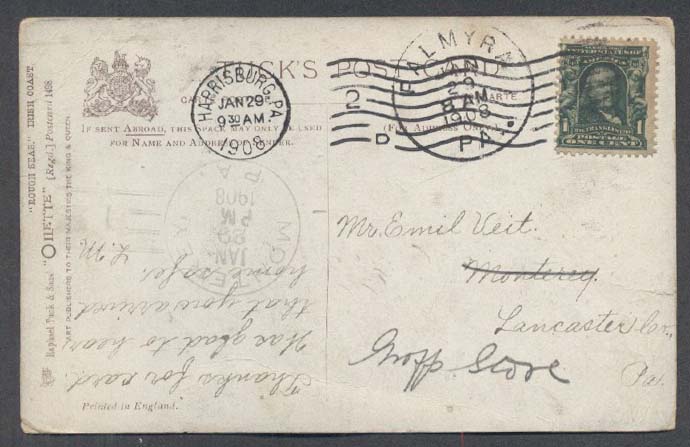 "ROUGH SEAS." IRISH COAST.
Raphael Tuck & Sons' "OILETTE" [Regd.] Postcard 1498
ART PUBLISHERS TO THEIR MAJESTIES THE KING & QUEEN.
TUCK'S POST CARD
CARTE
IF SENT ABROAD, THIS SPACE MAY ONLY BE USED
FOR NAME AND ADDRESS OF SENDER.
(FOR ADDRESS ONLY)
HARRISBURG, PA.
JAN 29
9 30 AM
1908
2
D
PALMYRA
JAN
29
8 AM
1908
PA.
1
POSTAGE
ONE CENT
MONTEREY
JAN
29
PM
1908
PA
Thanks for card.
Was glad to hear
that you arrived
home safe.
L. M.
Mr. Emil Veit.
Monterey.
Lancaster Co.,
Pa.
Groff Store
Printed in England.